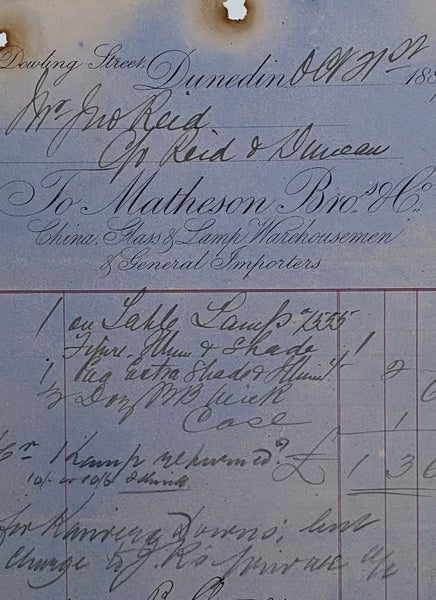 Dowling Street,
Dunedin Oct 21st 188
Mr Jno Reid
C/o Reid & Duncan
To Matheson Bros. & Co.
China, Glass & Lamp Warehousemen
& General Importers
1 only Table Lamp 1555
Figure & Shade 1
1 extra Shade & 2
½ Doz Wick 6
Case 1
1 Lamp returned? £ 1 3 6
10/- or 10/6
for Downs; but
charge to J.R's private a/c